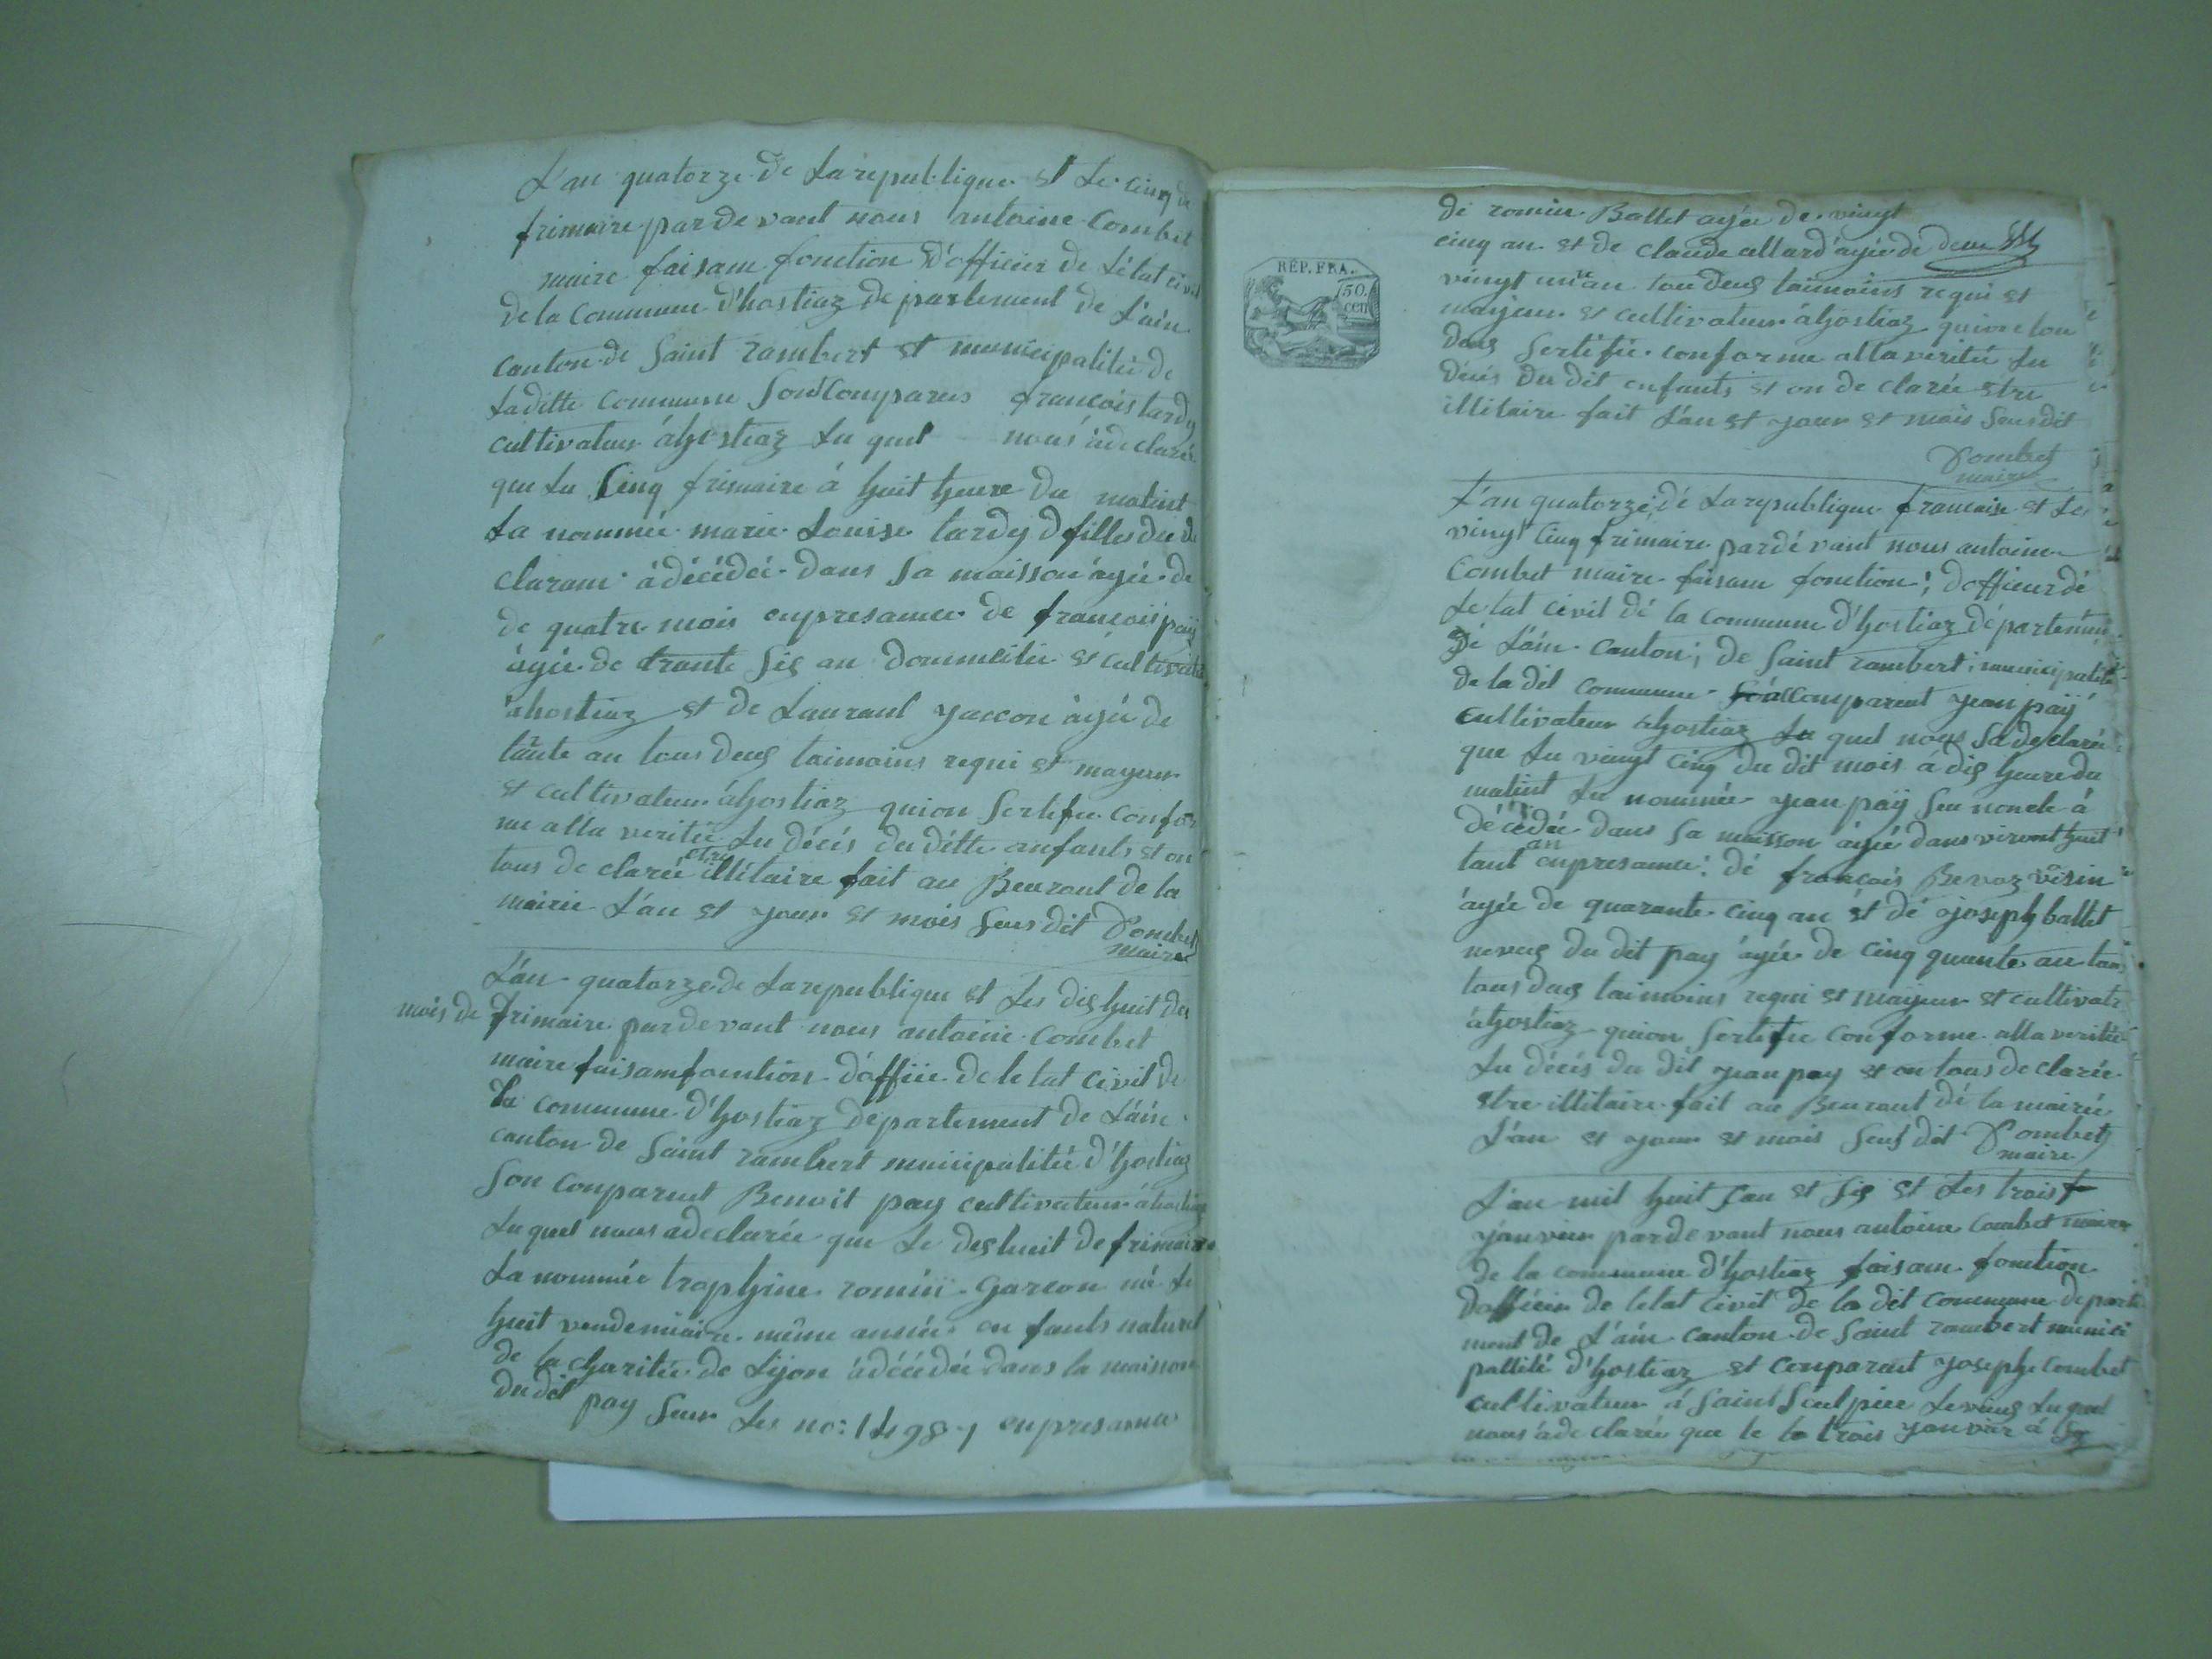 L'an quatorze de Larepublique et Le cinq de
frimaire parde vant nous antoine Combet
maire faisam fonction d'officier de Létat civil
de la Commune d'hostiaz departement de L'ain
canton de Saint rambert et municipalitée de
Laditte commune Sont Comparus francois tardy
cultivateur àhostiaz Lu quel nous àdeclarée
que Lu Cinq frimaire à huit heure du matint
La nommée marie Louise tardy fille du de
claram àdécédée dans Sa maisson àgée de
de quatre mois enpresance de francois pay
àgée de trante Sis an dommeilié et cultivateur
àhostiaz et de Laurant yaccon àgée de
trante an tous deus taimoins requi et mayeur
et cultivateur àhostiaz quion Sertifie Confor
me alla veritée Lu décés du ditte anfants et on
tous de clarée etre illitaire fait au Beuraut de la
mairie L'an et your et mois Sus dit Combet
maire
L'an quatorze de Larepublique et Les dis huit du
mois de frimaire par de vant nous antoine Combet
maire faisam fountion d'offiie de le tat Civil de
La commune d'hostiaz departement de L'ain
canton de Saint rambert municipalitée d'hostiaz
Son Conparut Benoit pay cultivateur àhostiaz
Lu quel nous adeclarée que Le dishuit de frimaire
La nommée trophine romin garcon né Le
huit vendemiaire même année en fants naturel
de la charitée de Lyon àdécédée dans la maisson
du dit pay Sous Les no: 14987 enpresance
RÉP. FRA.
750.
cen
de romin Ballet agée de vingt
cinq an et de claude allard àgée de deux
vingt un an tou deus taimoins requi et
mayeur et cultivateur àhostiaz quion tou
deus Sertifié conforme alla veritée Lu
décés du dit enfants et on de clarée etre
illitaire fait L'an et your et mois Sus dit
Combet
maire
L'an quatorze dé Larepublique francaise et Les
vingt Cinq frimaire pardé vant nous antoine
Combet maire faisam fonction d'officier dé
Le tat civil dé la Commune d'hostiaz département
dé L'ain Canton de Saint rambert municipalité
de la dit commune Comparent yean paÿ
cultivateur àhostiaz Lu quel nous àdeclarée
que Lu vingt Cinq du dit mois à dis heure du
matint Lu nommée yean paÿ Son noncle à
décédée dans Sa maisson àgée dans viront huit
tant an enpresance dé francois Bevoz voisin
àgée de quarante cinq an et dé joseph ballet
neveus du dit pay àgée de cinq quante an tou
tous deus taimoins requi et mayeur et cultivatr
àhostiaz quion Sertifie Conforme alla veritée
Lu décés du dit yean pay et on tous de clarée
etre illitaire fait au Beuraut dé la mairée
L'an et your et mois Sus dit Combet
maire
L'an mil huit can et Sis et Les trois
yanvier parde vant nous antoine Combet maire
de la commune d'hostiaz faisam fonction
dofficier de letat civil de la dit Commune departe
ment de L'ain canton de Saint rambert munici
pallité d'hostiaz et Comparut yosephe Combet
cultivateur à Saint Sculpice Levieus Lu quel
nous àdeclarée que le trois yanvier à